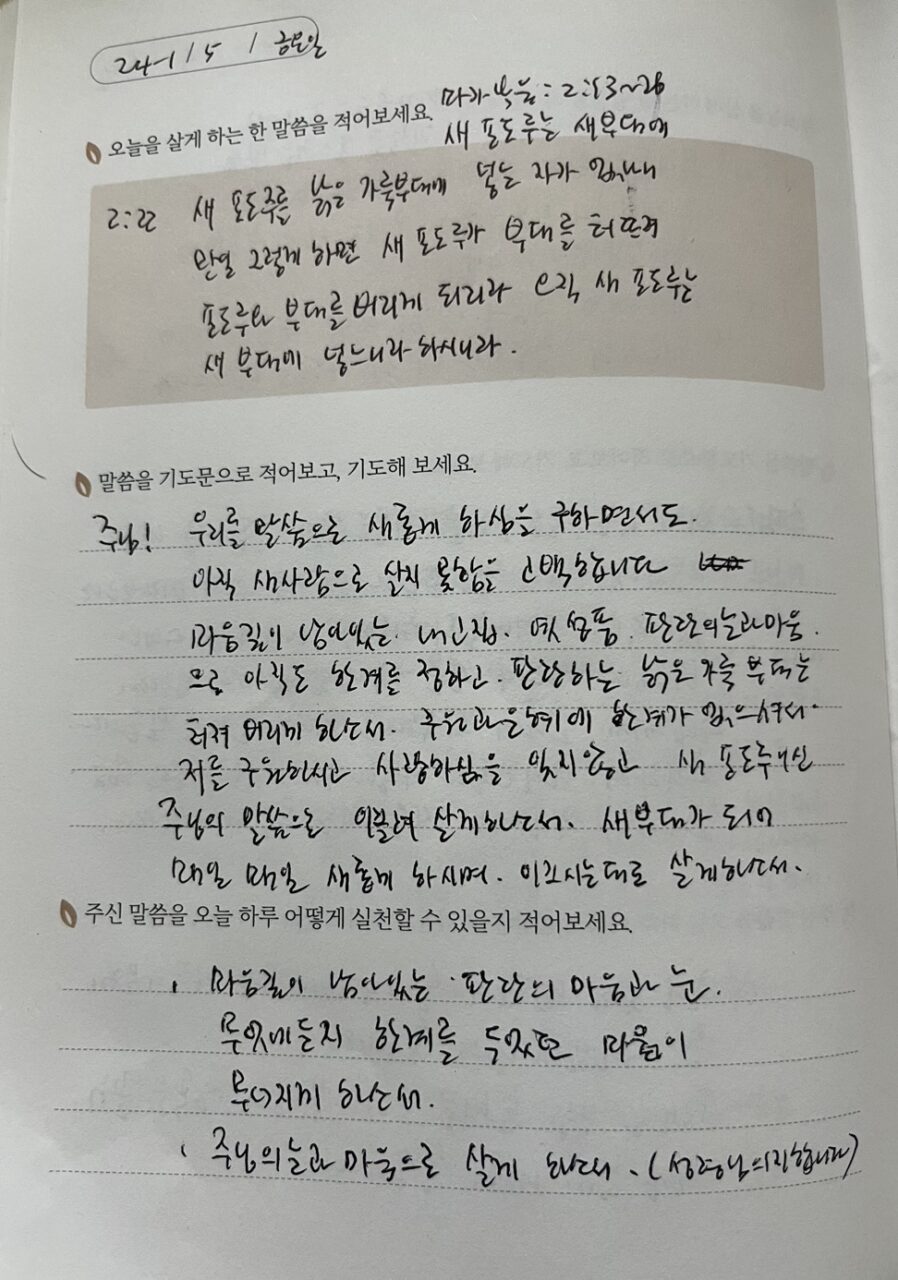 24-1/5 / 금요일
마가복음: 2:13~28
오늘을 살게 하는 한 말씀을 적어보세요.
새 포도주는 새부대에
2:22 새 포도주를 낡은 가죽부대에 넣는 자가 없나니
만일 그렇게 하면 새 포도주가 부대를 터뜨려
포도주와 부대를 버리게 되리라 오직 새 포도주는
새 부대에 넣느니라 하시니라.
말씀을 기도문으로 적어보고, 기도해 보세요.
주님! 우리를 말씀으로 새롭게 하심을 구하면서도.
아직 새사람으로 살지 못함을 고백합니다
마음깊이 남아있는. 내 고집. 옛 성품. 판단의눈과마음.
으로 아직도 한계를 정하고. 판단하는 낡은 가죽 부대는
터져 버리게 하소서. 구원과은혜에 한계가 없으셔서.
저를 구원하시고 사랑하심을 잊지않고 새 포도주이신
주님의 말씀으로 이끌려 살게하소서. 새부대가 되어
매일 매일 새롭게 하시며. 이끄시는대로 살게하소서.
주신 말씀을 오늘 하루 어떻게 실천할 수 있을지 적어보세요.
· 마음깊이 남아있는 · 판단의 마음과 눈.
무엇에든지 한계를 두었던 마음이
무너지게 하소서.
· 주님의눈과 마음으로 살게 하소서. (성령님의지합니다)